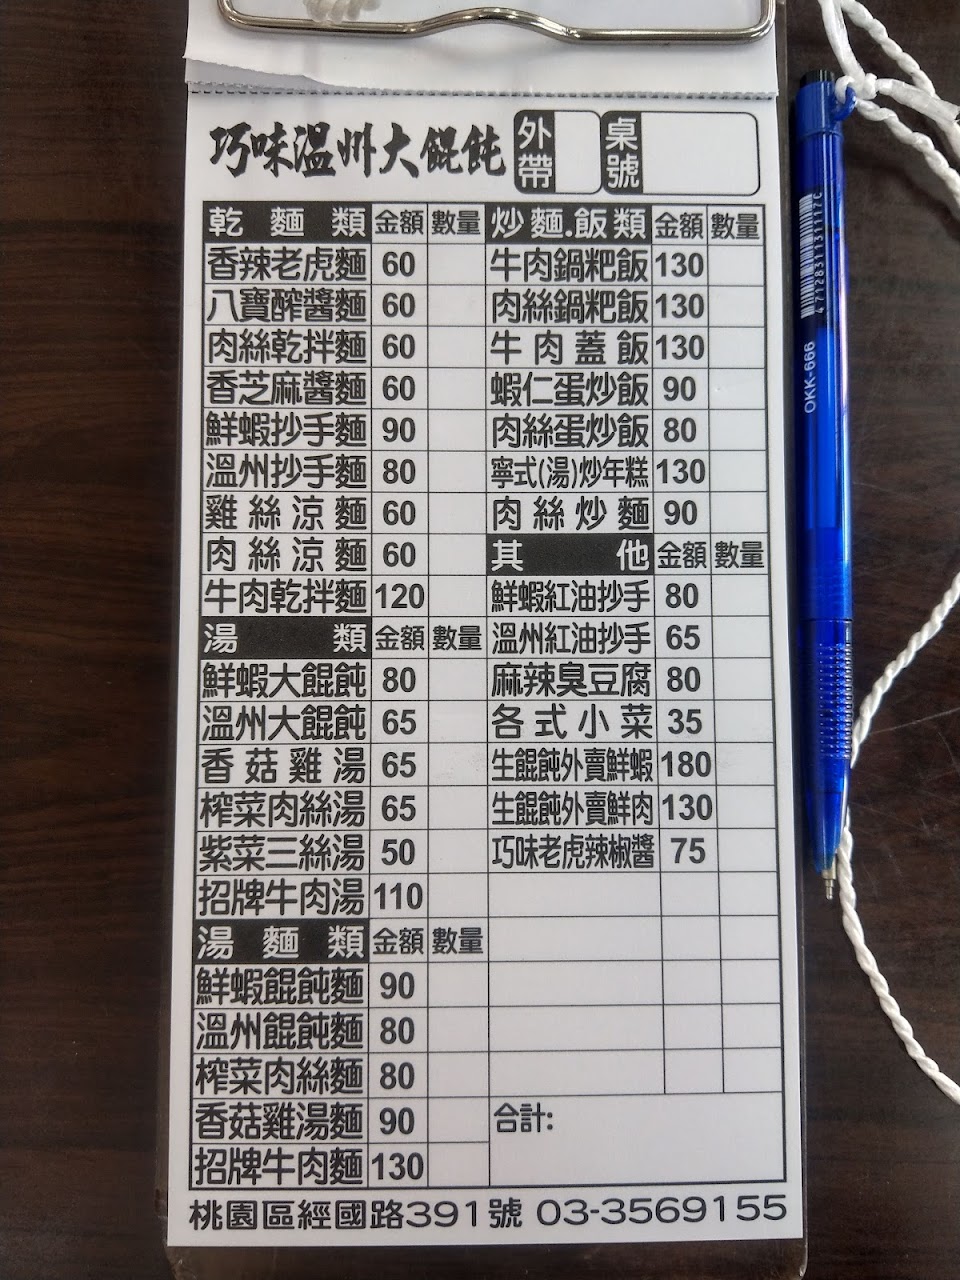 巧味温州大餛飩 外帶 桌號
乾麵類 金額 數量
香辣老虎麵 60
八寶醡醬麵 60
肉絲乾拌麵 60
香芝麻醬麵 60
鮮蝦抄手麵 90
溫州抄手麵 80
雞絲涼麵 60
肉絲涼麵 60
牛肉乾拌麵 120
湯類 金額 數量
鮮蝦大餛飩 80
溫州大餛飩 65
香菇雞湯 65
榨菜肉絲湯 65
紫菜三絲湯 50
招牌牛肉湯 110
湯麵類 金額 數量
鮮蝦餛飩麵 90
溫州餛飩麵 80
榨菜肉絲麵 80
香菇雞湯麵 90
招牌牛肉麵 130
炒麵.飯類 金額 數量
牛肉鍋粑飯 130
肉絲鍋粑飯 130
牛肉蓋飯 130
蝦仁蛋炒飯 90
肉絲蛋炒飯 80
寧式(湯)炒年糕 130
肉絲炒麵 90
其他 金額 數量
鮮蝦紅油抄手 80
溫州紅油抄手 65
麻辣臭豆腐 80
各式小菜 35
生餛飩外賣鮮蝦 180
生餛飩外賣鮮肉 130
巧味老虎辣椒醬 75
合計:
桃園區經國路391號 03-3569155
4712831131117C
OKK-666